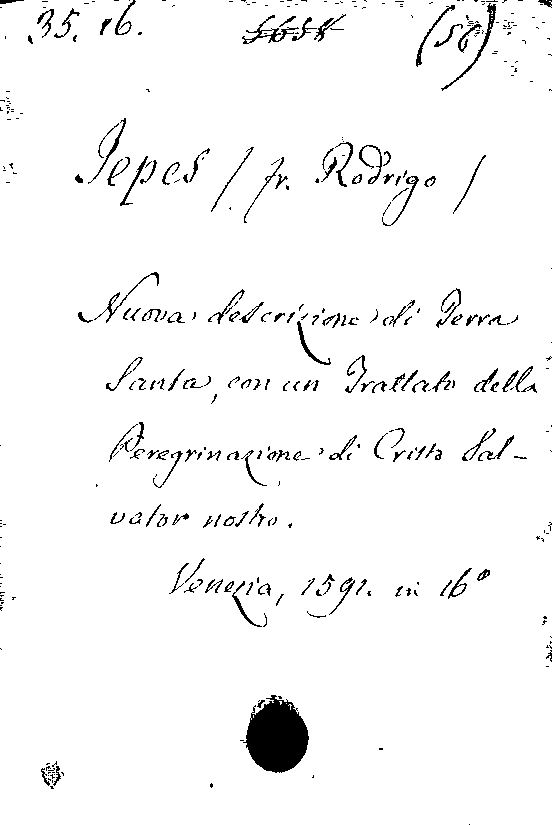 35. 16. 5658 (56)
Jepes /. fr. Rodrigo /
Nuova descrizione di Terra
Santa, con un Trattato della
Peregrinazione di Cristo Sal-
vator nostro.
Venezia, 1591. in 16º